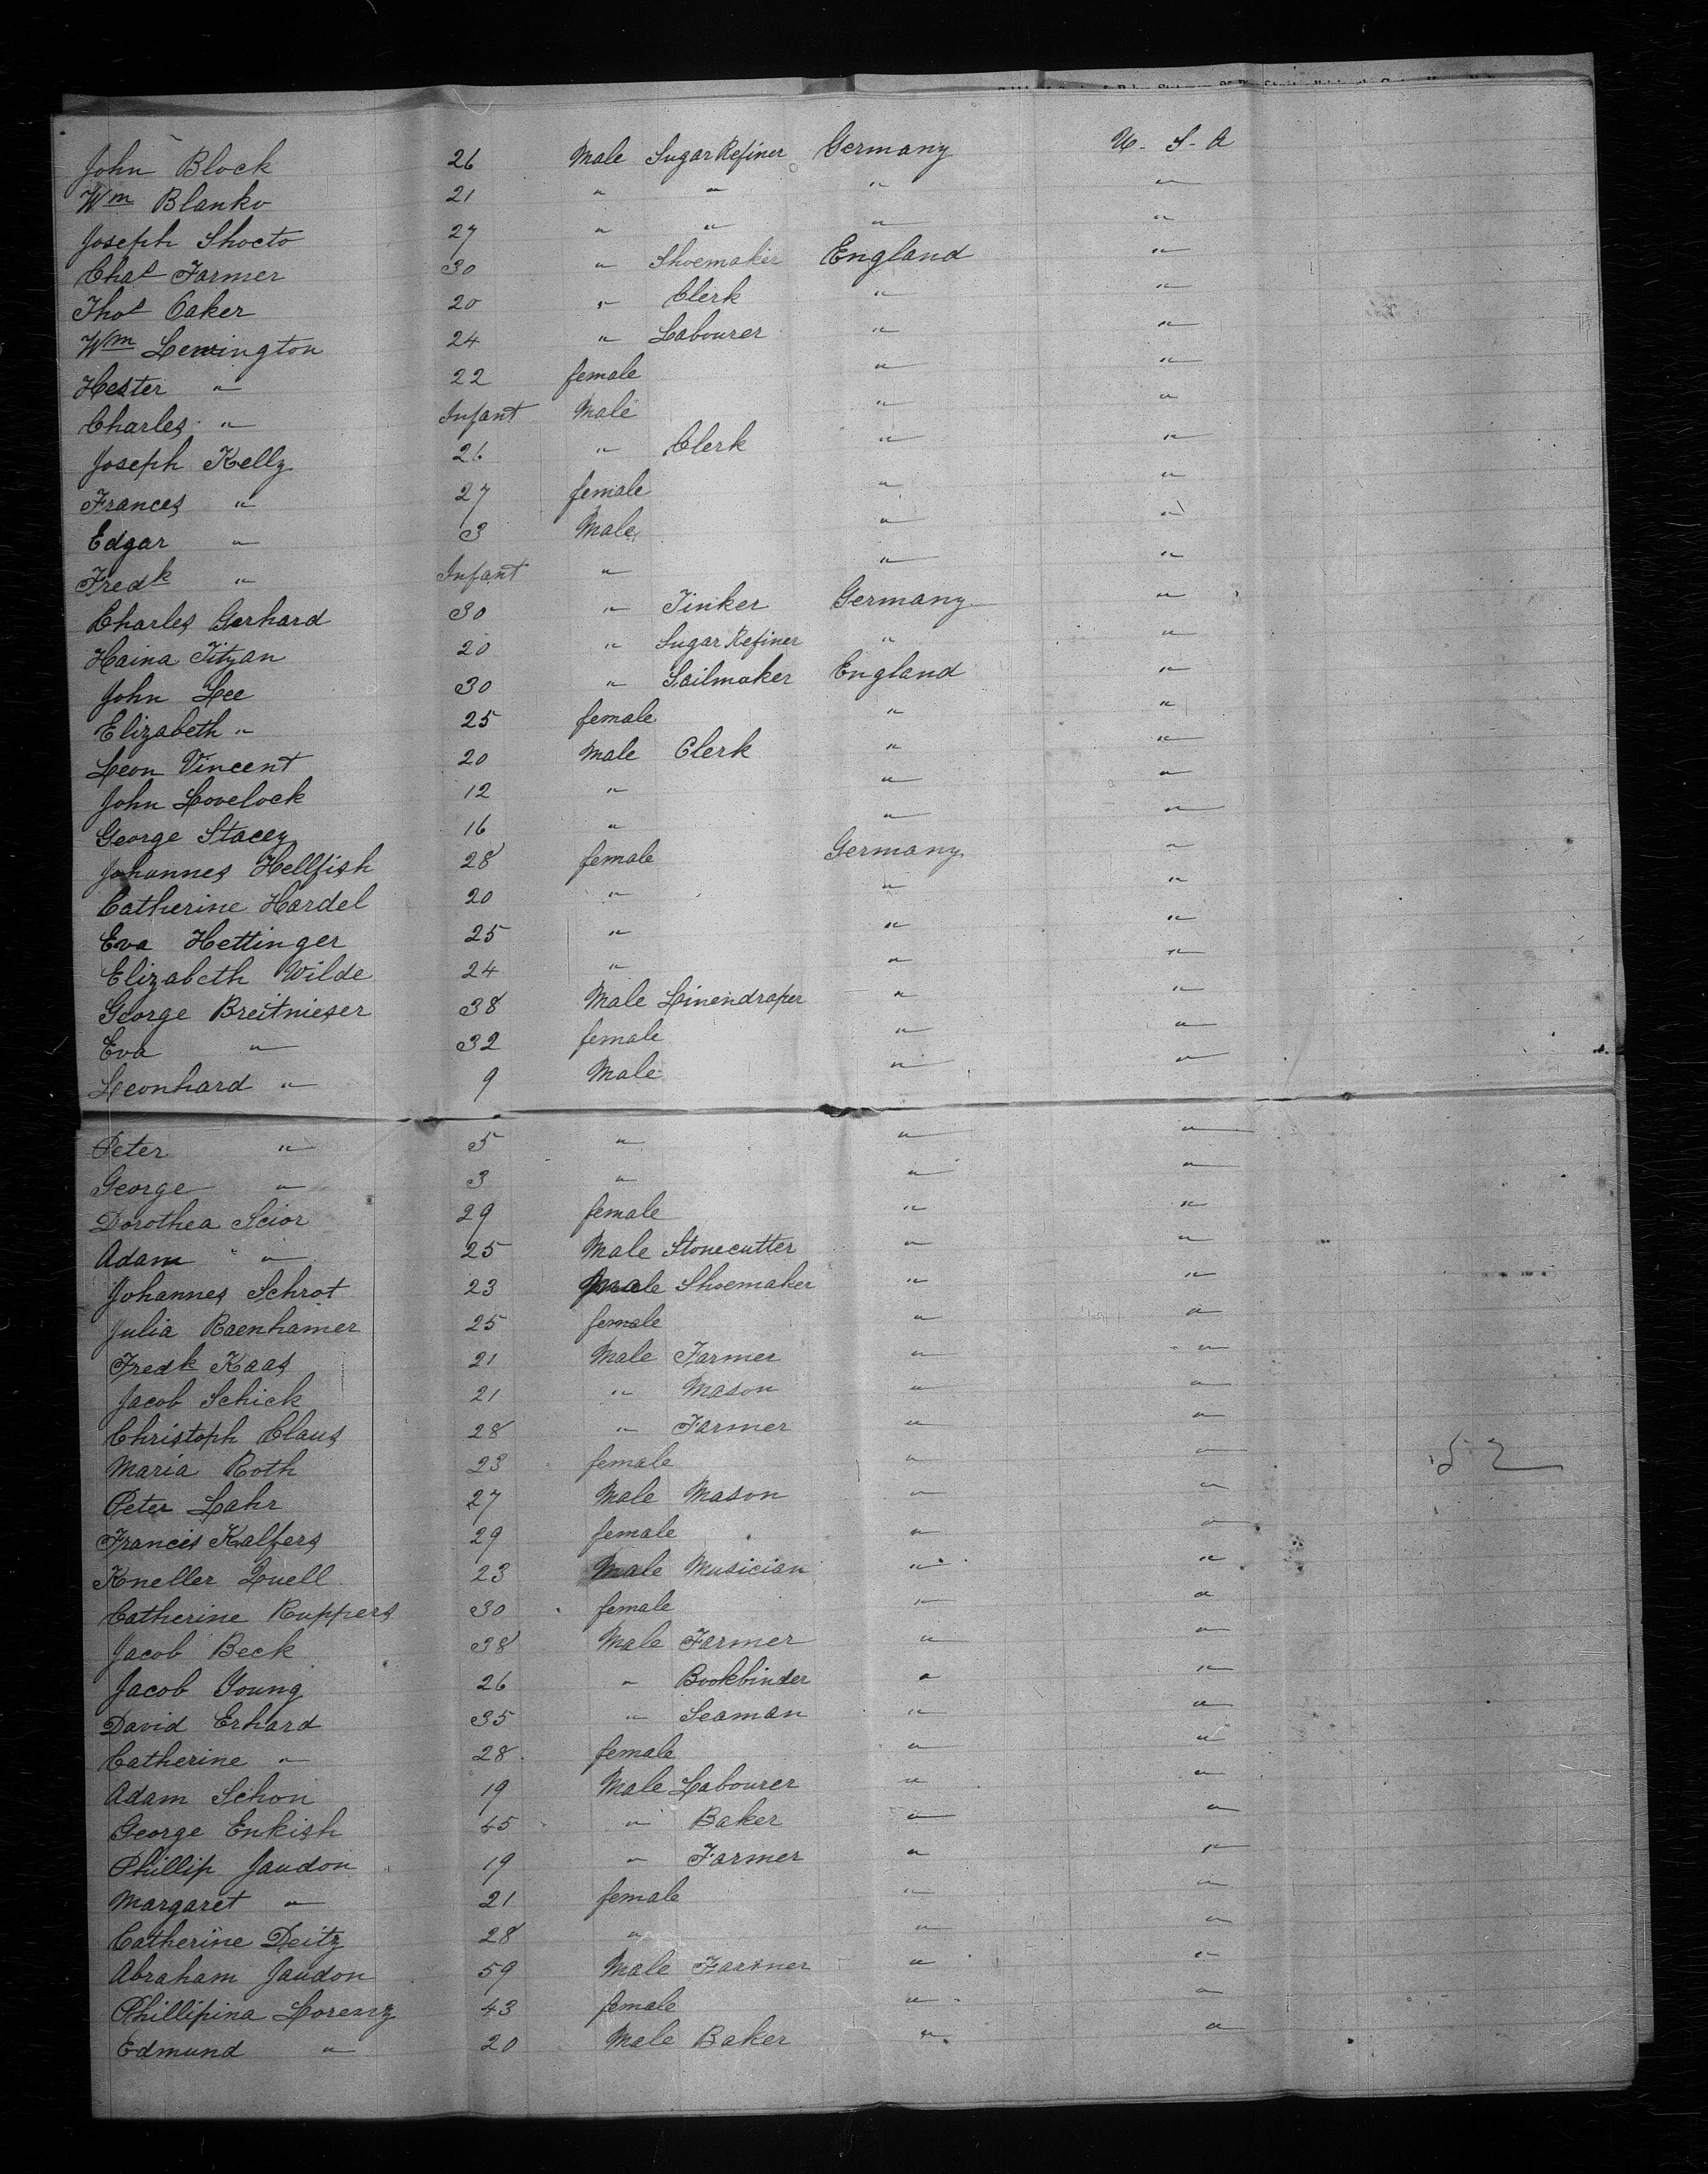 John Block 26 Male Sugar Refiner Germany U. S. A
Wm Blanko 21 " " " "
Joseph Shocto 27 " " " "
Chas Farmer 30 " Shoemaker England "
Thos Oaker 20 " Clerk " "
Wm Lewington 24 " Labourer " "
Hester " 22 female " "
Charles " Infant Male " "
Joseph Kelly 26 " Clerk " "
Frances " 27 female " "
Edgar " 3 Male " "
Fredk " Infant " " "
Charles Gerhard 30 " Tinker Germany "
Haina Titzan 20 " Sugar Refiner " "
John Lee 30 " Sailmaker England "
Elizabeth " 25 female " "
Leon Vincent 20 Male Clerk " "
John Lovelock 12 " " "
George Stacey 16 " " "
Johannes Hellfish 28 female Germany "
Catherine Hardel 20 " " "
Eva Hettinger 25 " " "
Elizabeth Wilde 24 " " "
George Breitnieser 38 Male Linendraper " "
Eva " 32 female " "
Leonhard " 9 Male " "
Peter " 5 " " "
George " 3 " " "
Dorothea Scior 29 female " "
Adam " 25 Male Stonecutter " "
Johannes Schrot 23 Male Shoemaker " "
Julia Raenhamer 25 female " "
Fredk Kaas 21 Male Farmer " "
Jacob Schick 21 " Mason " "
Christoph Claus 28 " Farmer " "
Maria Roth 23 female " " 52
Peter Lahr 27 Male Mason " "
Francis Kalfers 29 female " "
Kneller Luell 23 Male Musician " "
Catherine Ruppers 30 female " "
Jacob Beck 38 Male Farmer " "
Jacob Young 26 " Bookbinder " "
David Erhard 35 " Seaman " "
Catherine " 28 female " "
Adam Schon 19 Male Labourer " "
George Enkish 45 " Baker " "
Phillip Jaudon 19 " Farmer " "
Margaret " 21 female " "
Catherine Deitz 28 " " "
Abraham Jaudon 59 Male Farmer " "
Phillipina Lorenz 43 female " "
Edmund " 20 Male Baker " "